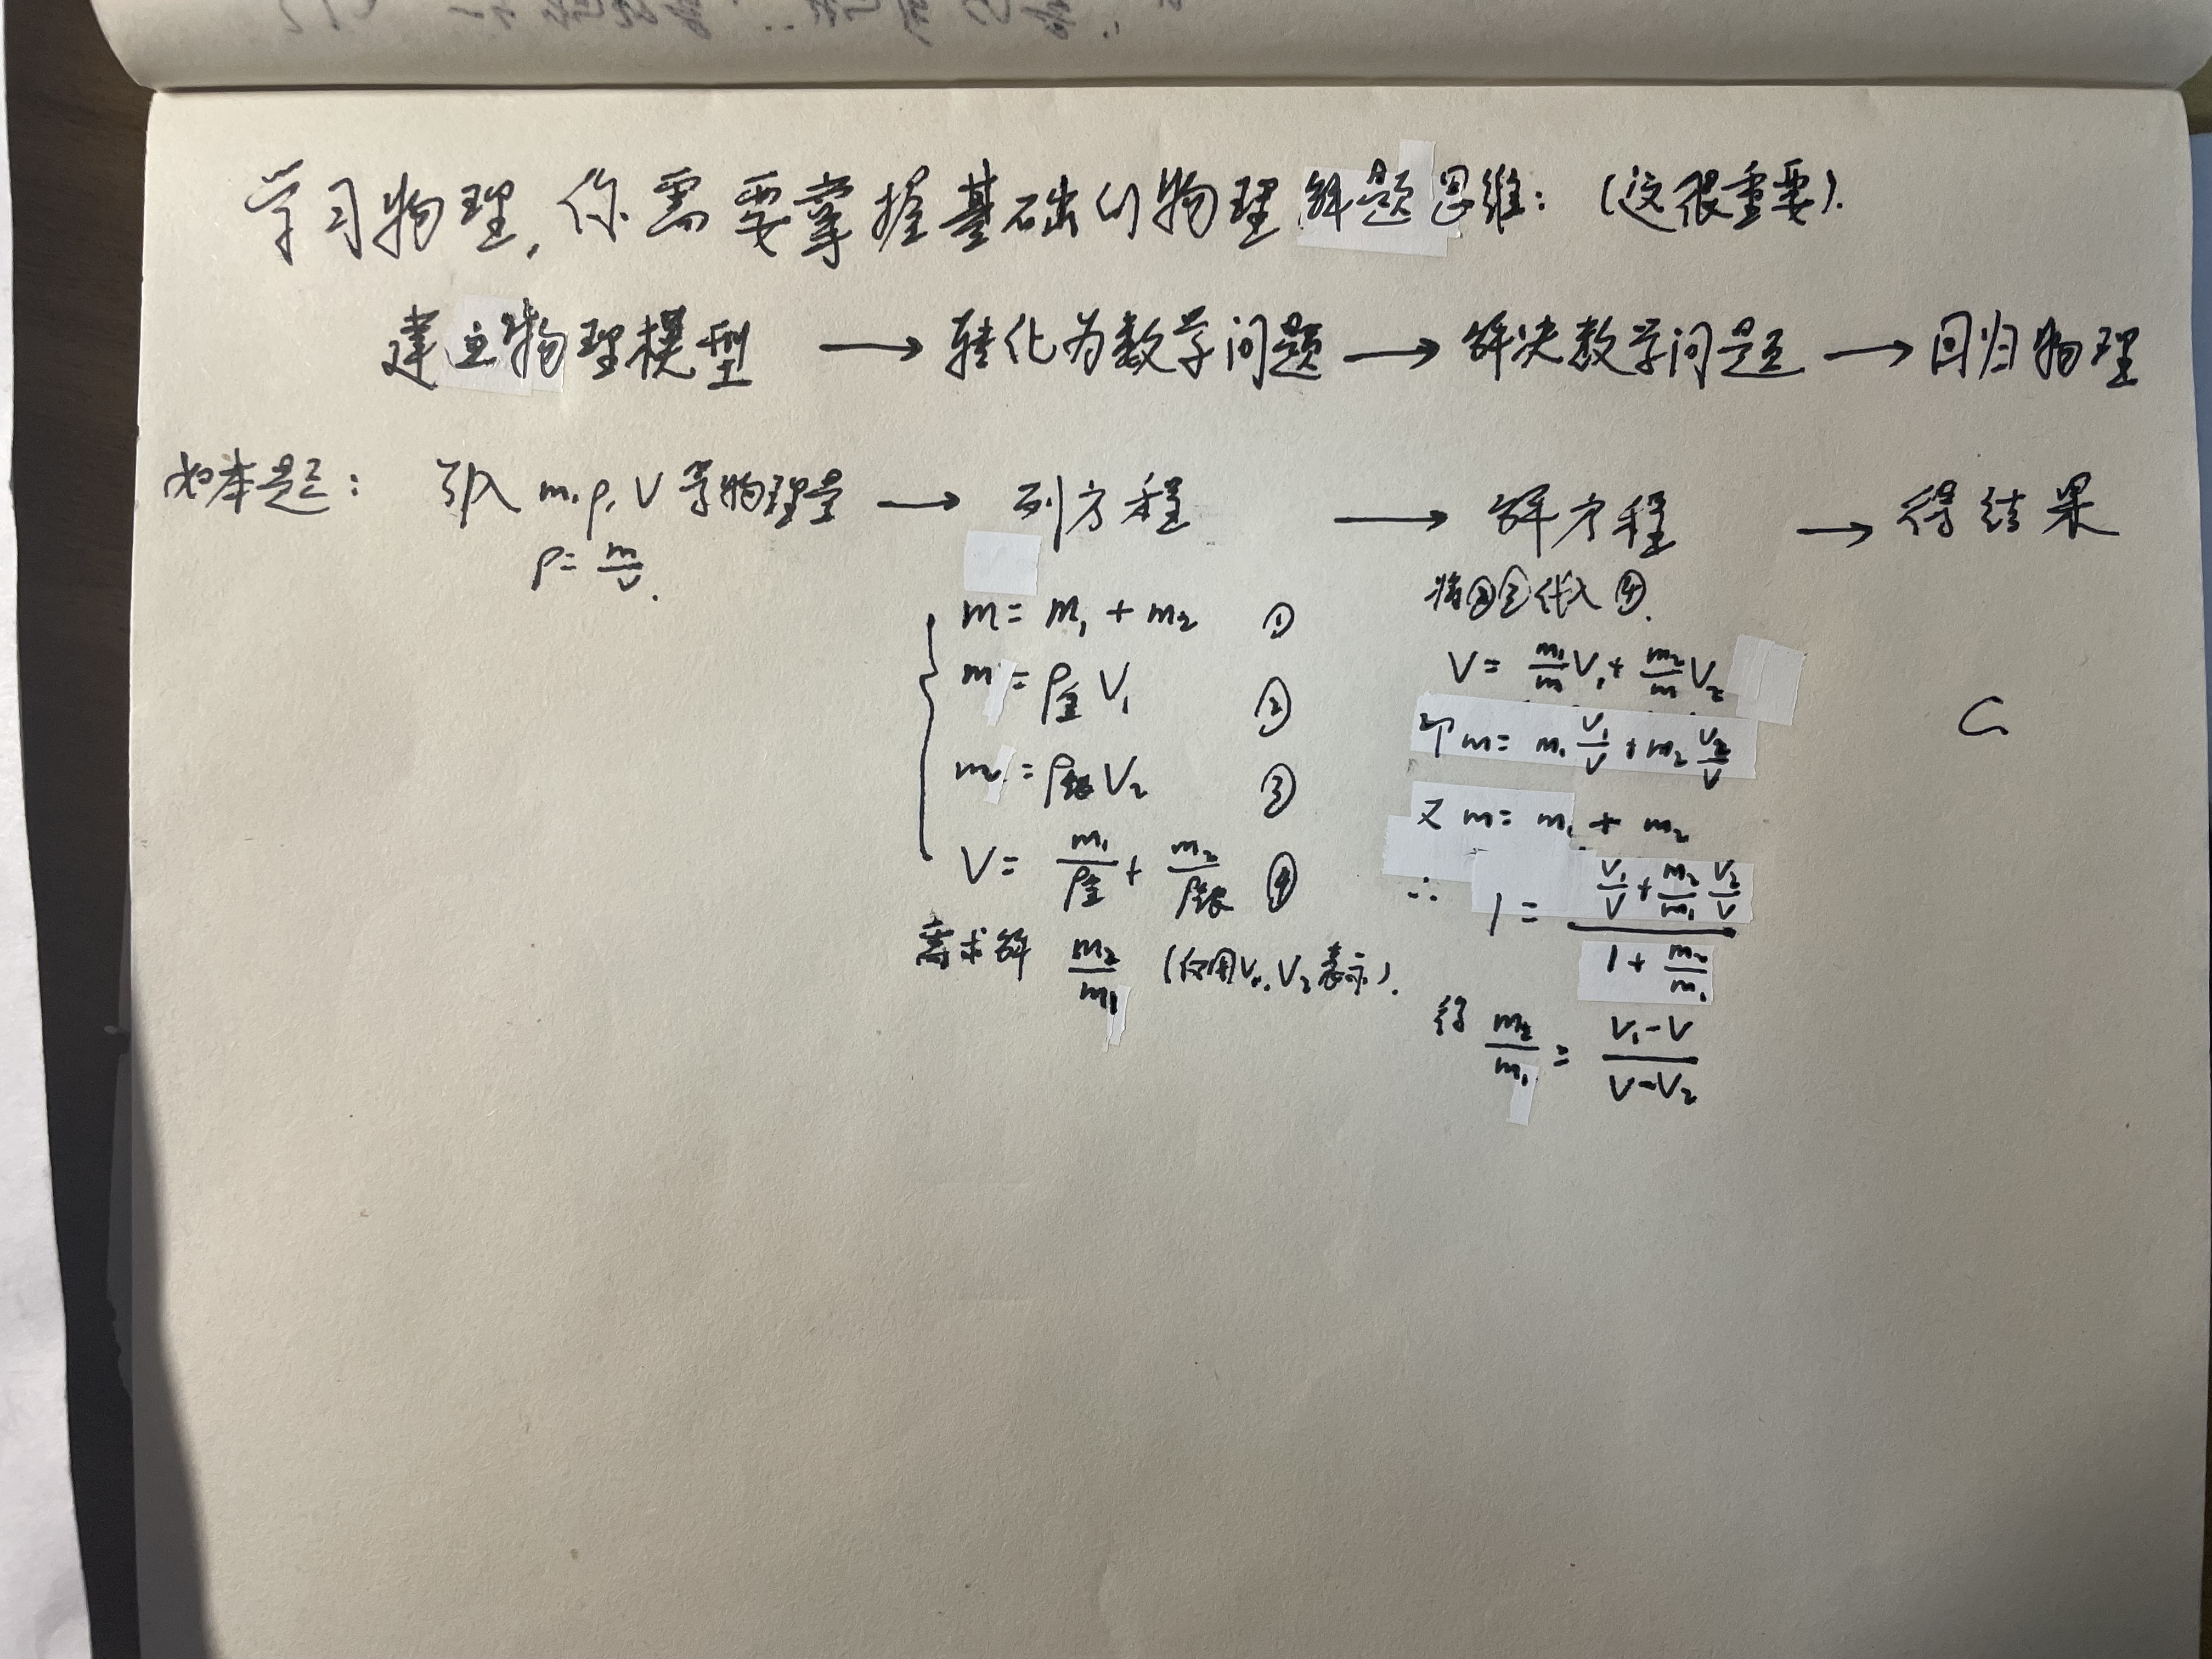 学习物理,你需要掌握基础的物理解题思维:(这很重要).
建立物理模型 → 转化为数学问题 → 解决数学问题 → 回归物理
如本题: 引入 m, ρ, V 等物理量 → 列方程 → 解方程 → 得结果
ρ = m/V.
m = m₁ + m₂ ①
m = ρ金 V₁ ②
m = ρ银 V₂ ③
V = m₁/ρ金 + m₂/ρ银 ④
需求解 m₂/m₁ (仅用V₁,V₂表示).
将②③代入④.
V = m₁/m V₁ + m₂/m V₂
即 m = m₁ V₁/V + m₂ V₂/V
又 m = m₁ + m₂
∴ 1 = (V₁/V + m₂/m₁ V₂/V)/(1 + m₂/m₁)
得 m₂/m₁ = (V₁-V)/(V-V₂)
C